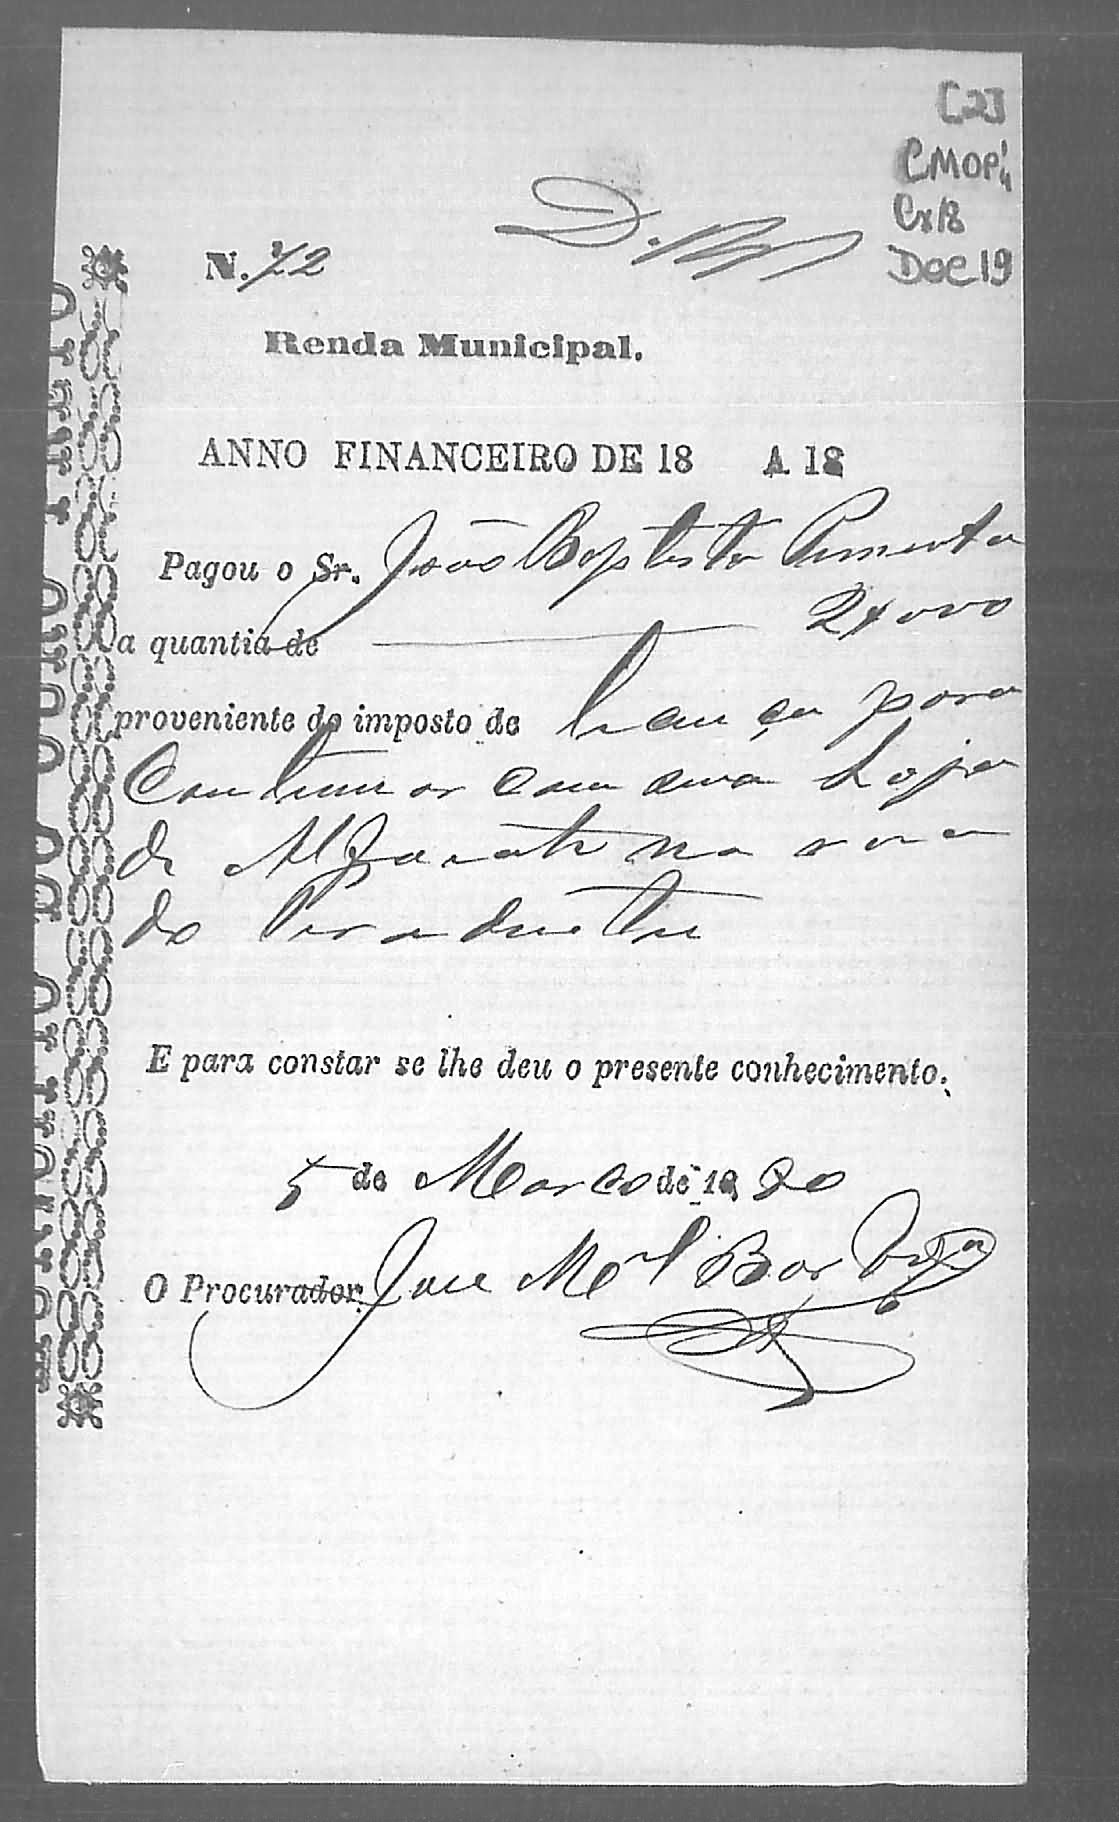 [2]
CMOP
Cx 18
Doc 19
N. 72
Renda Municipal.
ANNO FINANCEIRO DE 18 A 18
Pagou o Sr. João Baptista Pimenta
a quantia de 2$000
proveniente do imposto de licença para
Continuar com sua Loja
de Alfaiate na rua
do
E para constar se lhe deu o presente conhecimento.
5 de Março de 18 80
O Procurador José Mel Barboza